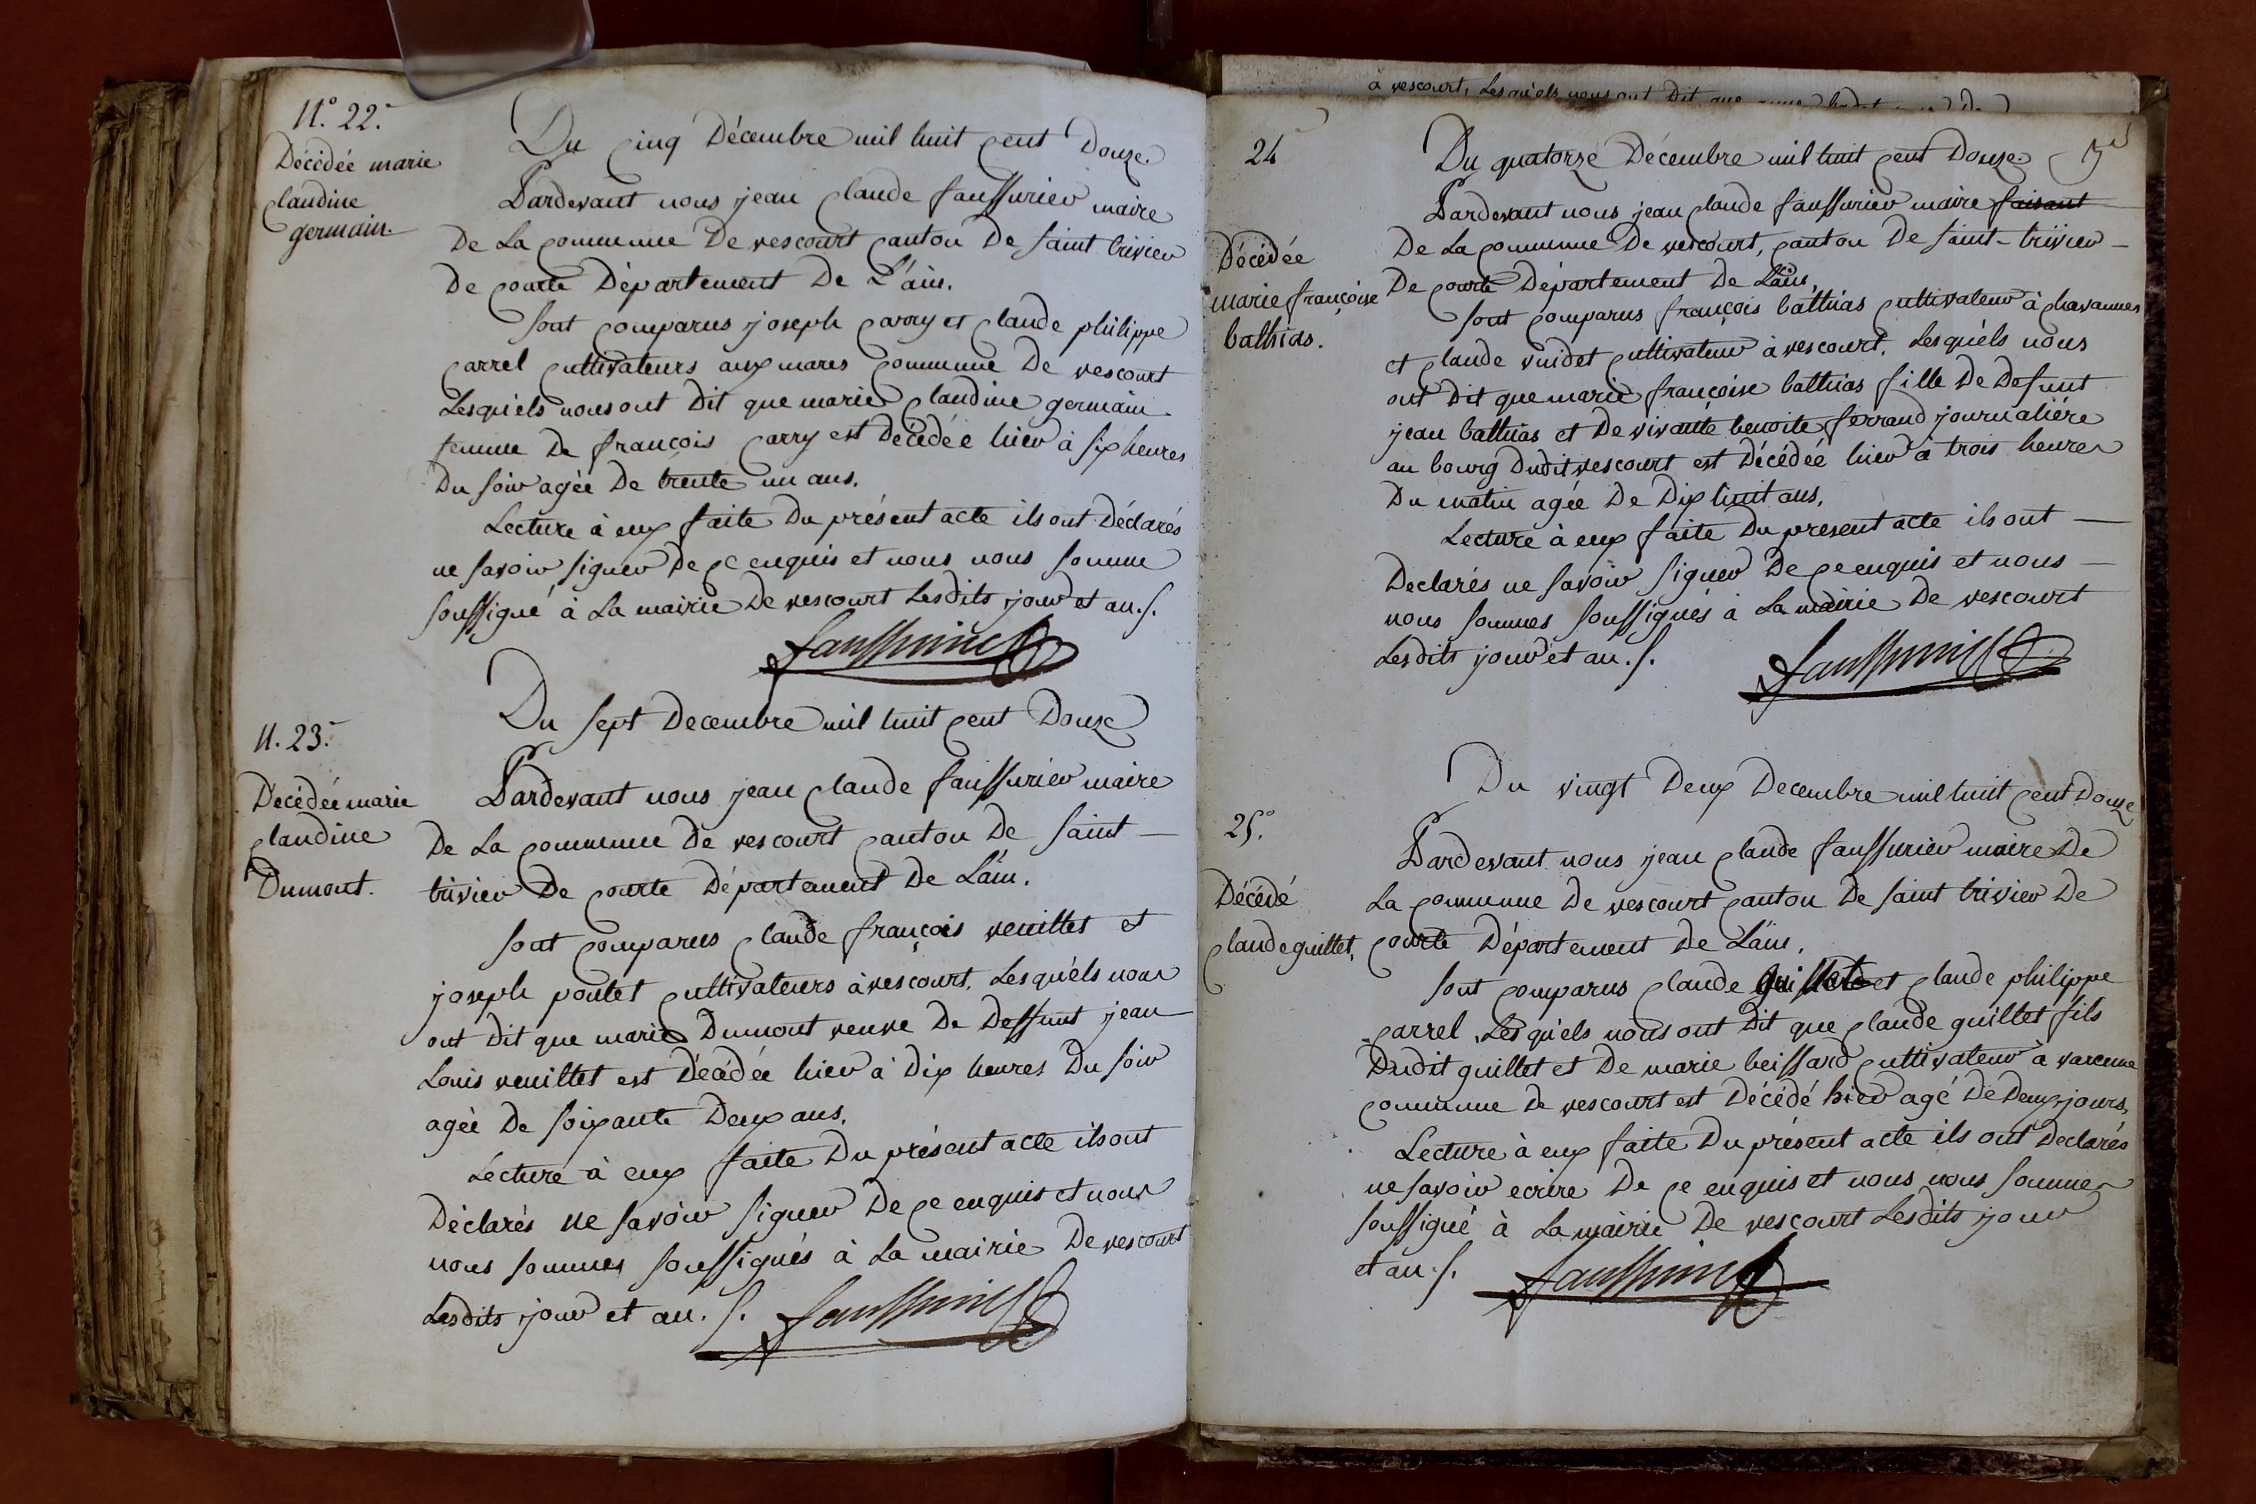 N.° 22.
Décédée marie
claudine
germain.
Du cinq Décembre mil huit cent Douze.
Pardevant nous jean claude faussurier maire
De La commune De vescourt canton De saint trivier
De courte Département De L'ain.
sont comparus joseph carry et claude philippe
carrel cultivateurs aux mares commune De vescourt
Lesquiels nous ont Dit que marie claudine germain
femme De françois carry est Décédée hier à six heures
Du soir agée De trente un ans.
Lecture à eux faite Du présent acte ils ont Déclarés
ne savoir signer De ce enquis et nous nous somme
soussigné à La mairie De vescourt Lesdits jour et an. /.
faussurier
N. 23.
Décédée marie
claudine
Dumont.
Du sept Decembre mil huit cent Douze
Pardevant nous jean claude faussurier maire
De La commune De vescourt canton De saint
trivier De courte Département De L'ain.
sont comparus claude françois veuillet et
joseph poulet cultivateurs à vescourt. Lesquiels nous
ont Dit que marie Dumont veuve De Deffunt jean
Louis veuillet est Décédée hier à Dix heures Du soir
agée De soixante Deux ans.
Lecture à eux faite Du présent acte ils ont
Déclarés ne savoir signer De ce enquis et nous
nous sommes soussignés à La mairie De vescourt
Lesdits jour et an. /.
faussurier
à vescourt, Lesquiels nous ont Dit que
24
Décédée
marie françoise
bathias.
Du quatorze Décembre mil huit cent Douze.
Pardevant nous jean claude faussurier maire faisant
De La commune De vescourt, canton De saint-trivier
De courte Département De L'ain.
sont comparus françois bathias cultivateur à chavannes
et claude vuidet cultivateur à vescourt. Lesquiels nous
ont Dit que marie françoise bathias fille De Defunt
jean bathias et De vivante benoite ferrand journalière
au bourg Dudit vescourt est Décédée hier à trois heures
Du matin agée De Dix huit ans.
Lecture à eux faite Du present acte ils ont
Declarés ne savoir signer De ce enquis et nous
nous sommes soussignés à La mairie De vescourt
Lesdits jour et an. /.
faussurier
25.°
Décédé
claude guillet.
Du vingt Deux Decembre mil huit cent Douze
Pardevant nous jean claude faussurier maire De
La commune De vescourt canton De saint trivier De
courte Département De L'ain.
sont comparus claude guillet et claude philippe
carrel Lesquiels nous ont Dit que claude guillet fils
Dudit guillet et De marie beissard cultivateur à varenne
commune De vescourt est Décédé hier agé De Deux jours.
Lecture à eux faite Du présent acte ils ont Declarés
ne savoir ecrire De ce enquis et nous nous sommes
soussigné à La mairie De vescourt Lesdits jour
et an. /.
faussurier